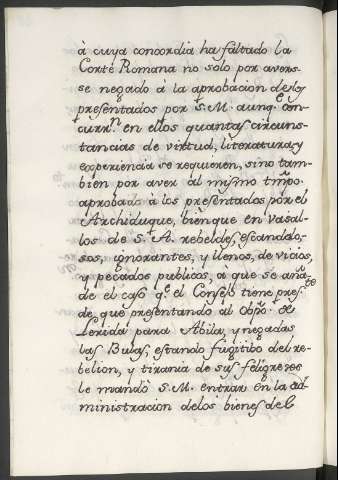 à cuya concordia ha faltado la
Corte Romana no solo por aver-
se negado à la aprobacion delos
presentados por S.M. aunq.e con-
curr.n en ellos quantas circuns-
tancias de virtud, literatura, y
experiencia se requieren, sino tam-
bien por aver al mismo tmpo.
aprobado à los presentados por el
Archiduque, bien que en vasal-
los de S. A. rebeldes, escandalo-
sos, ignorantes, y llenos, de vicios,
y pecados publicos, a que se aña-
de el caso q.e el Consejo tiene pres.te
de que presentando al Obpo. de
Lerida para Abila, y negadas
las Bulas, estando fugitibo del re-
belion, y tirania de sus feligreses
le mandò S.M. entrar en la ad-
ministracion delos bienes del